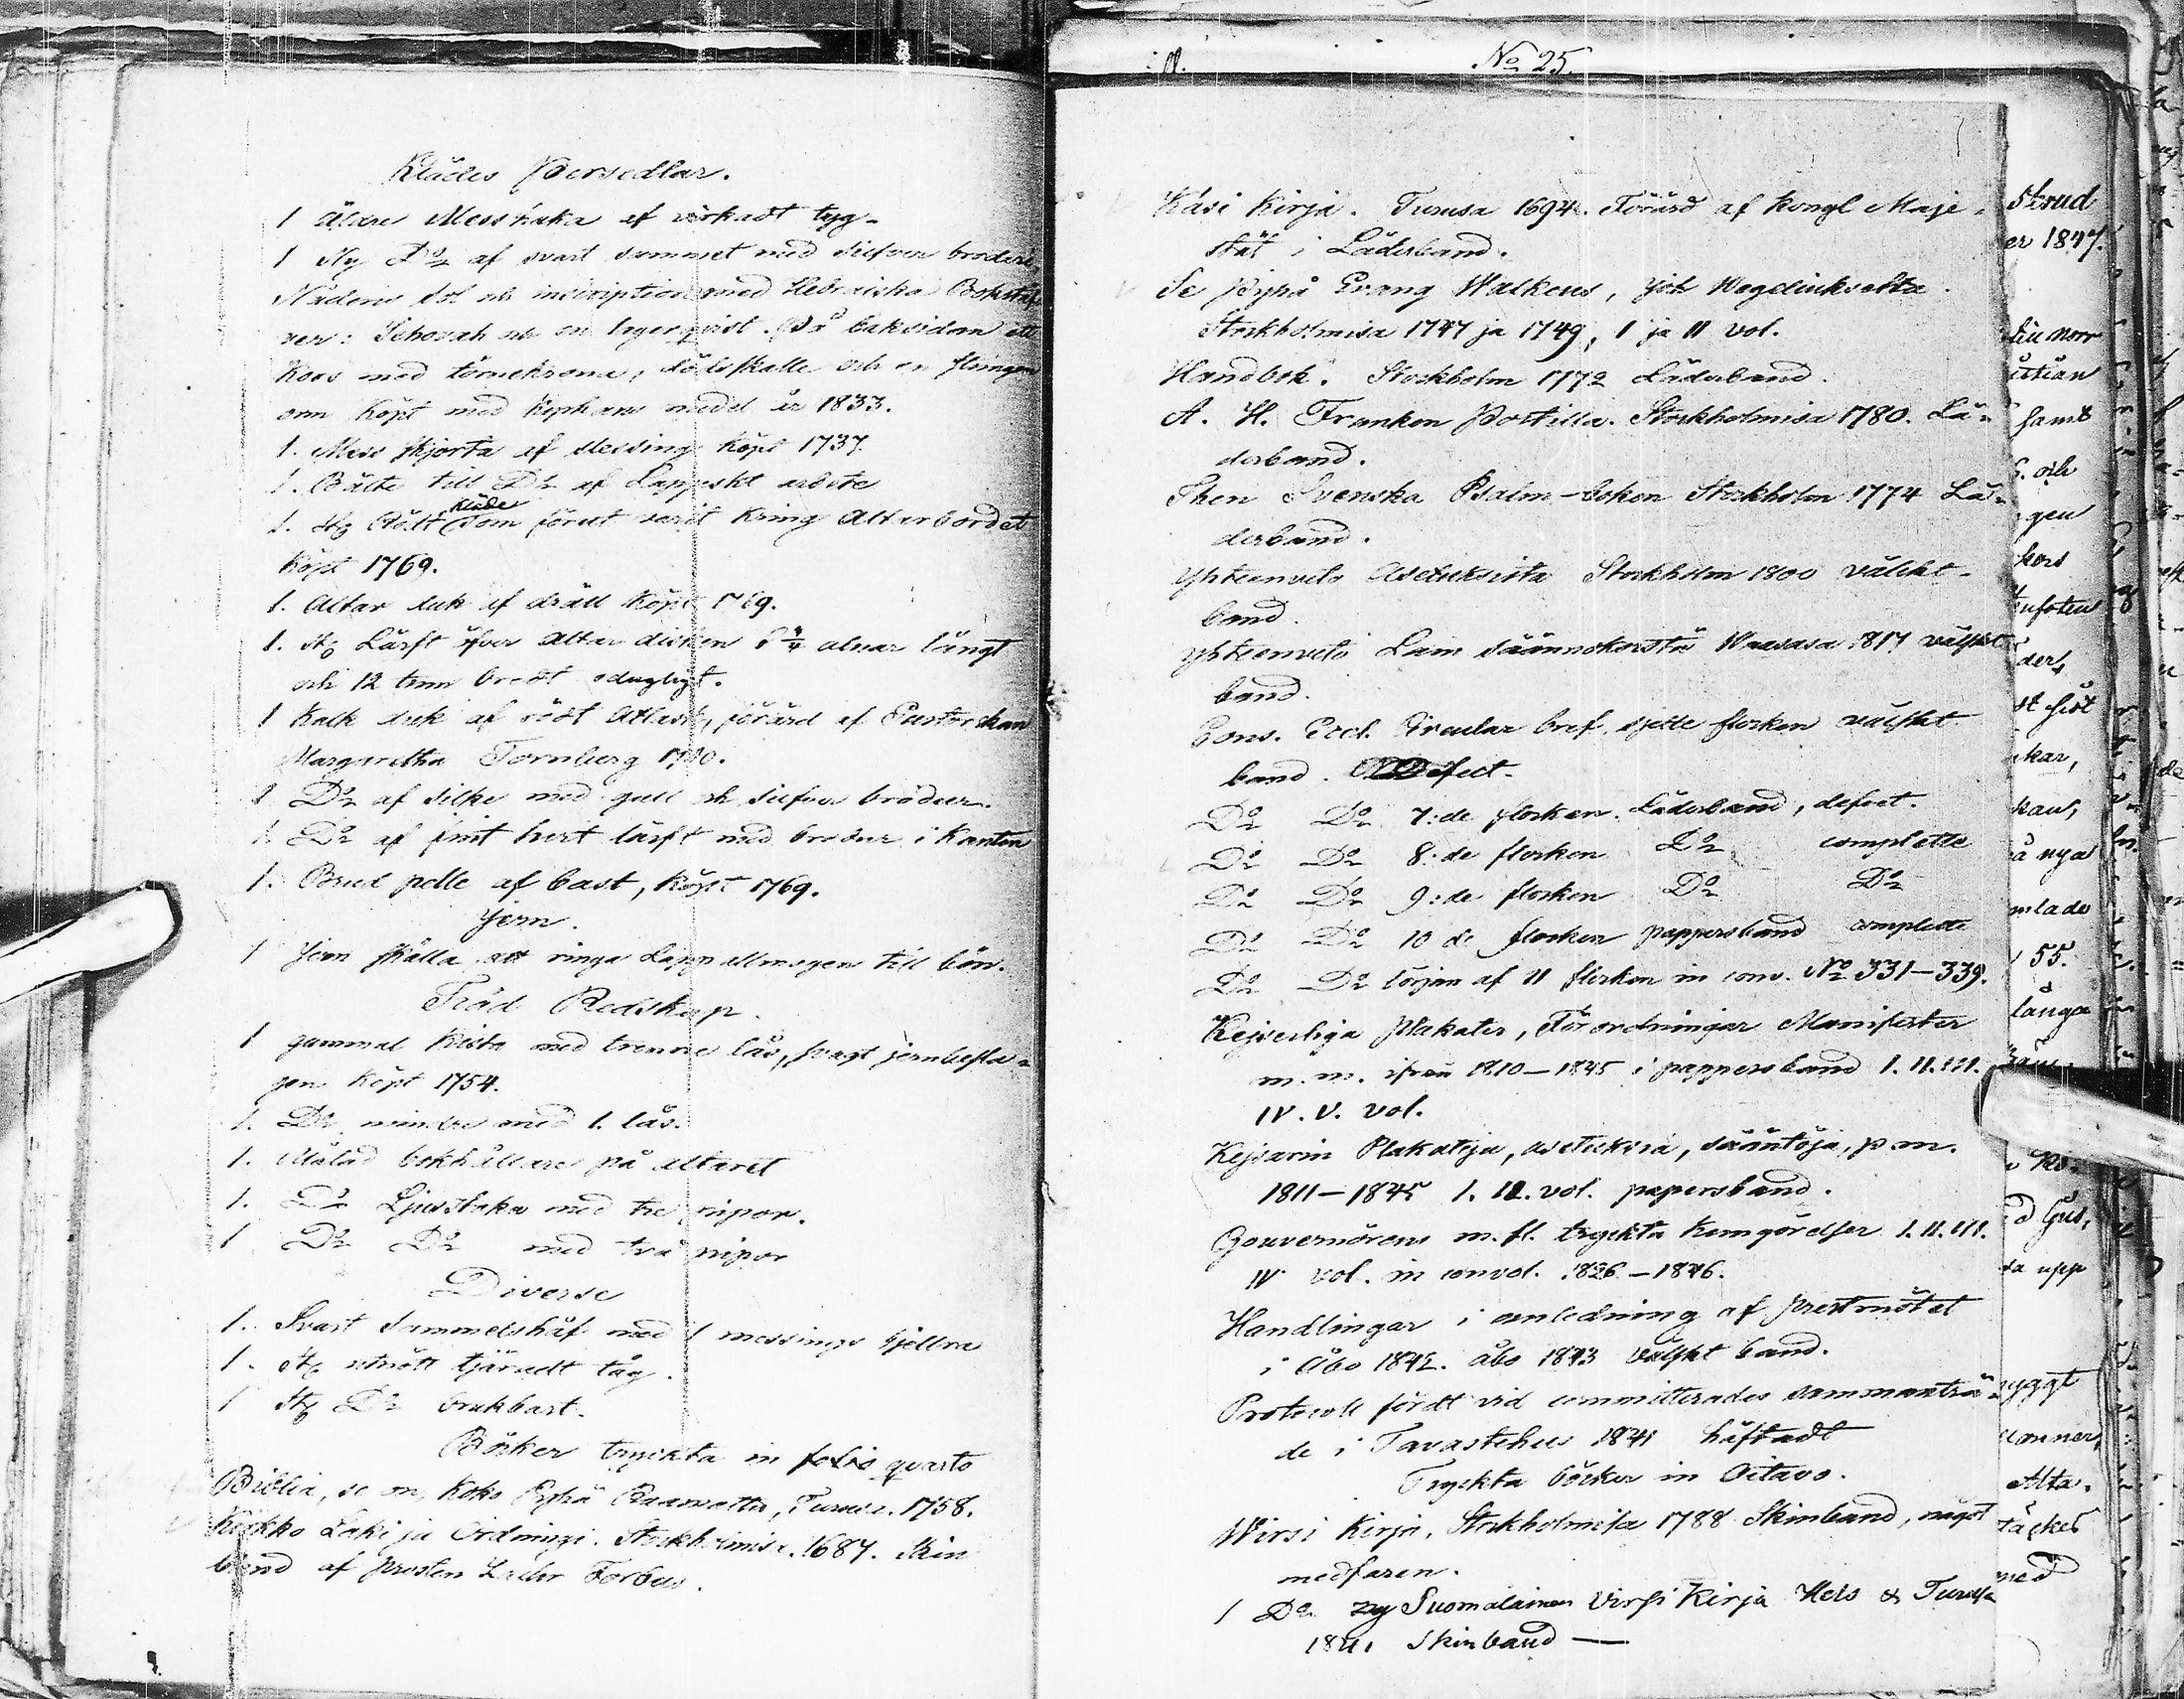 Klädes Persedlar.
1 äldre Messhaka af virkadt tyg.
1 Ny Do af svart sammet med silfver broderi,
Nådens sol och inscription med Hebraiska Bokstäf
ver: Jehovah och en lager qvist. På baksidan ett
Kors med törnekrona, dödskalle och en
orm Köpt med Kyrkans medel år 1833.
1. Mess skjorta af Köpt 1737.
1. Bälte till Do af Lappskt arbete
1. St. Rött Kläde som förut varit kring Altarbordet
Köpt 1769.
1. Altar duk af dräll Köpt 1769.
1. St. Lärft öfver Altar disken alnar långt
och 12 tum bredt odugligt.
1 Kalk duk af rödt Atlask, förärd af Pastorskan
Margaretha Fornberg
1 Do af silke med gull och silfver brodeur.
1. Do af fint hvitt lärft med brodeur i Kanten
1. Brud pelle af bast, köpt 1769.
Jern.
1 Jern skälla att ringa Lapp allmogen till bön.
Träd Redskap.
1 gammal Kista med trenne lås, svagt jernbesla=
gen Köpt 1754.
1. Do mindre med 1. lås.
1. Målad bokhållare på altaret
1. Do Ljusstaka med tre pipor.
1 Do Do med två pipor
Diverse
1. Svart Sammetshåf med 1 messings bjellra
1. St. utnött tjäradt tåg.
1 St. Do brukbart.
Böcker tryckta in folio quarto
Biblia, se on, Koko Pyhä Raamattu, Turusa. 1758.
Kirkko Laki ja Ordningi. Stockholmisa. 1687. Skin
band af prosten Forbus.
No 25.
Käsi Kirja. Turusa 1694. Förärd af Kongl Maje=
stät i Läderband.
Se Pyhä Evang Walkeus, Joh Wegeliukselta.
Stockholmisa 1747 ja 1749, I ja II vol.
Handbok. Stockholm 1772 Läderband.
A. H. Franken Postilla. Stockholmisa 1780. Lä=
derband.
Then Svenska Psalm-boken Stockholm 1774 Lä=
derband.
Yhteenveto Asetuksista Stockholm 1800 välskt
band.
Yhteenveto Lain säännoksistä Waasasa 1817 välskt
band.
Cons. Eccl. Circulär bref, sjette flocken välskt
band. Defect.
Do Do 7:de flocken. Läderband, defect.
Do Do 8:de flocken Do complette
Do Do 9:de flocken Do Do
Do Do 10 de flocken pappersband complette
Do Do början af 11 flocken in conv. No 331-339.
Kejserliga Plakater, Förordningar Manifester
m. m. ifrån 1810-1845 i pappersband I. II. III.
IV. V. vol.
Kejsarin Plakateja, asetuksia, sääntöjä, p. m.
1811-1845 I. II. vol. papersband.
Gouvernörens m. fl. tryckta Kungörelser I. II. III.
IV vol. in convol. 1826-1846.
Handlingar i anledning af prestmötet
i Åbo 1842. Åbo 1843 välskt band.
Protocoll fördt vid committerades sammanträ=
de i Tavastehus 1841 häftadt
Tryckta böcker in Octavo.
Wirsi Kirja, Stockholmisa 1788 Skinband, något
medfaren.
1 Do ny Suomalainen Virsi Kirja Hels & Turusa
Skinband —
Skrud
er 1847.
norr
samt
S. och
gen
kors
der,
kar,
kan,
på nya
mlade
55.
långa
d Gus,
ta upp
yggt
Alta.
täcket
med